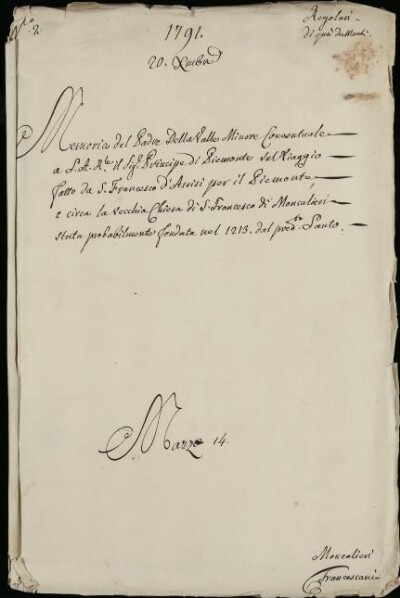 N.° 2.
Regolari
di quà da Monti.
1791.
20. Xmbre
Memoria del Padre Della Valle Minore Conventuale
a S. A. R.le il Sig.r Principe di Piemonte sul Viaggio
fatto da S. Francesco d'Assisi per il Piemonte,
e circa la vecchia Chiesa di S. Francesco di Moncalieri
stata probabilmente fondata nel 1213. dal pred.to Santo.
Mazzo 14.
Moncalieri
Francescani